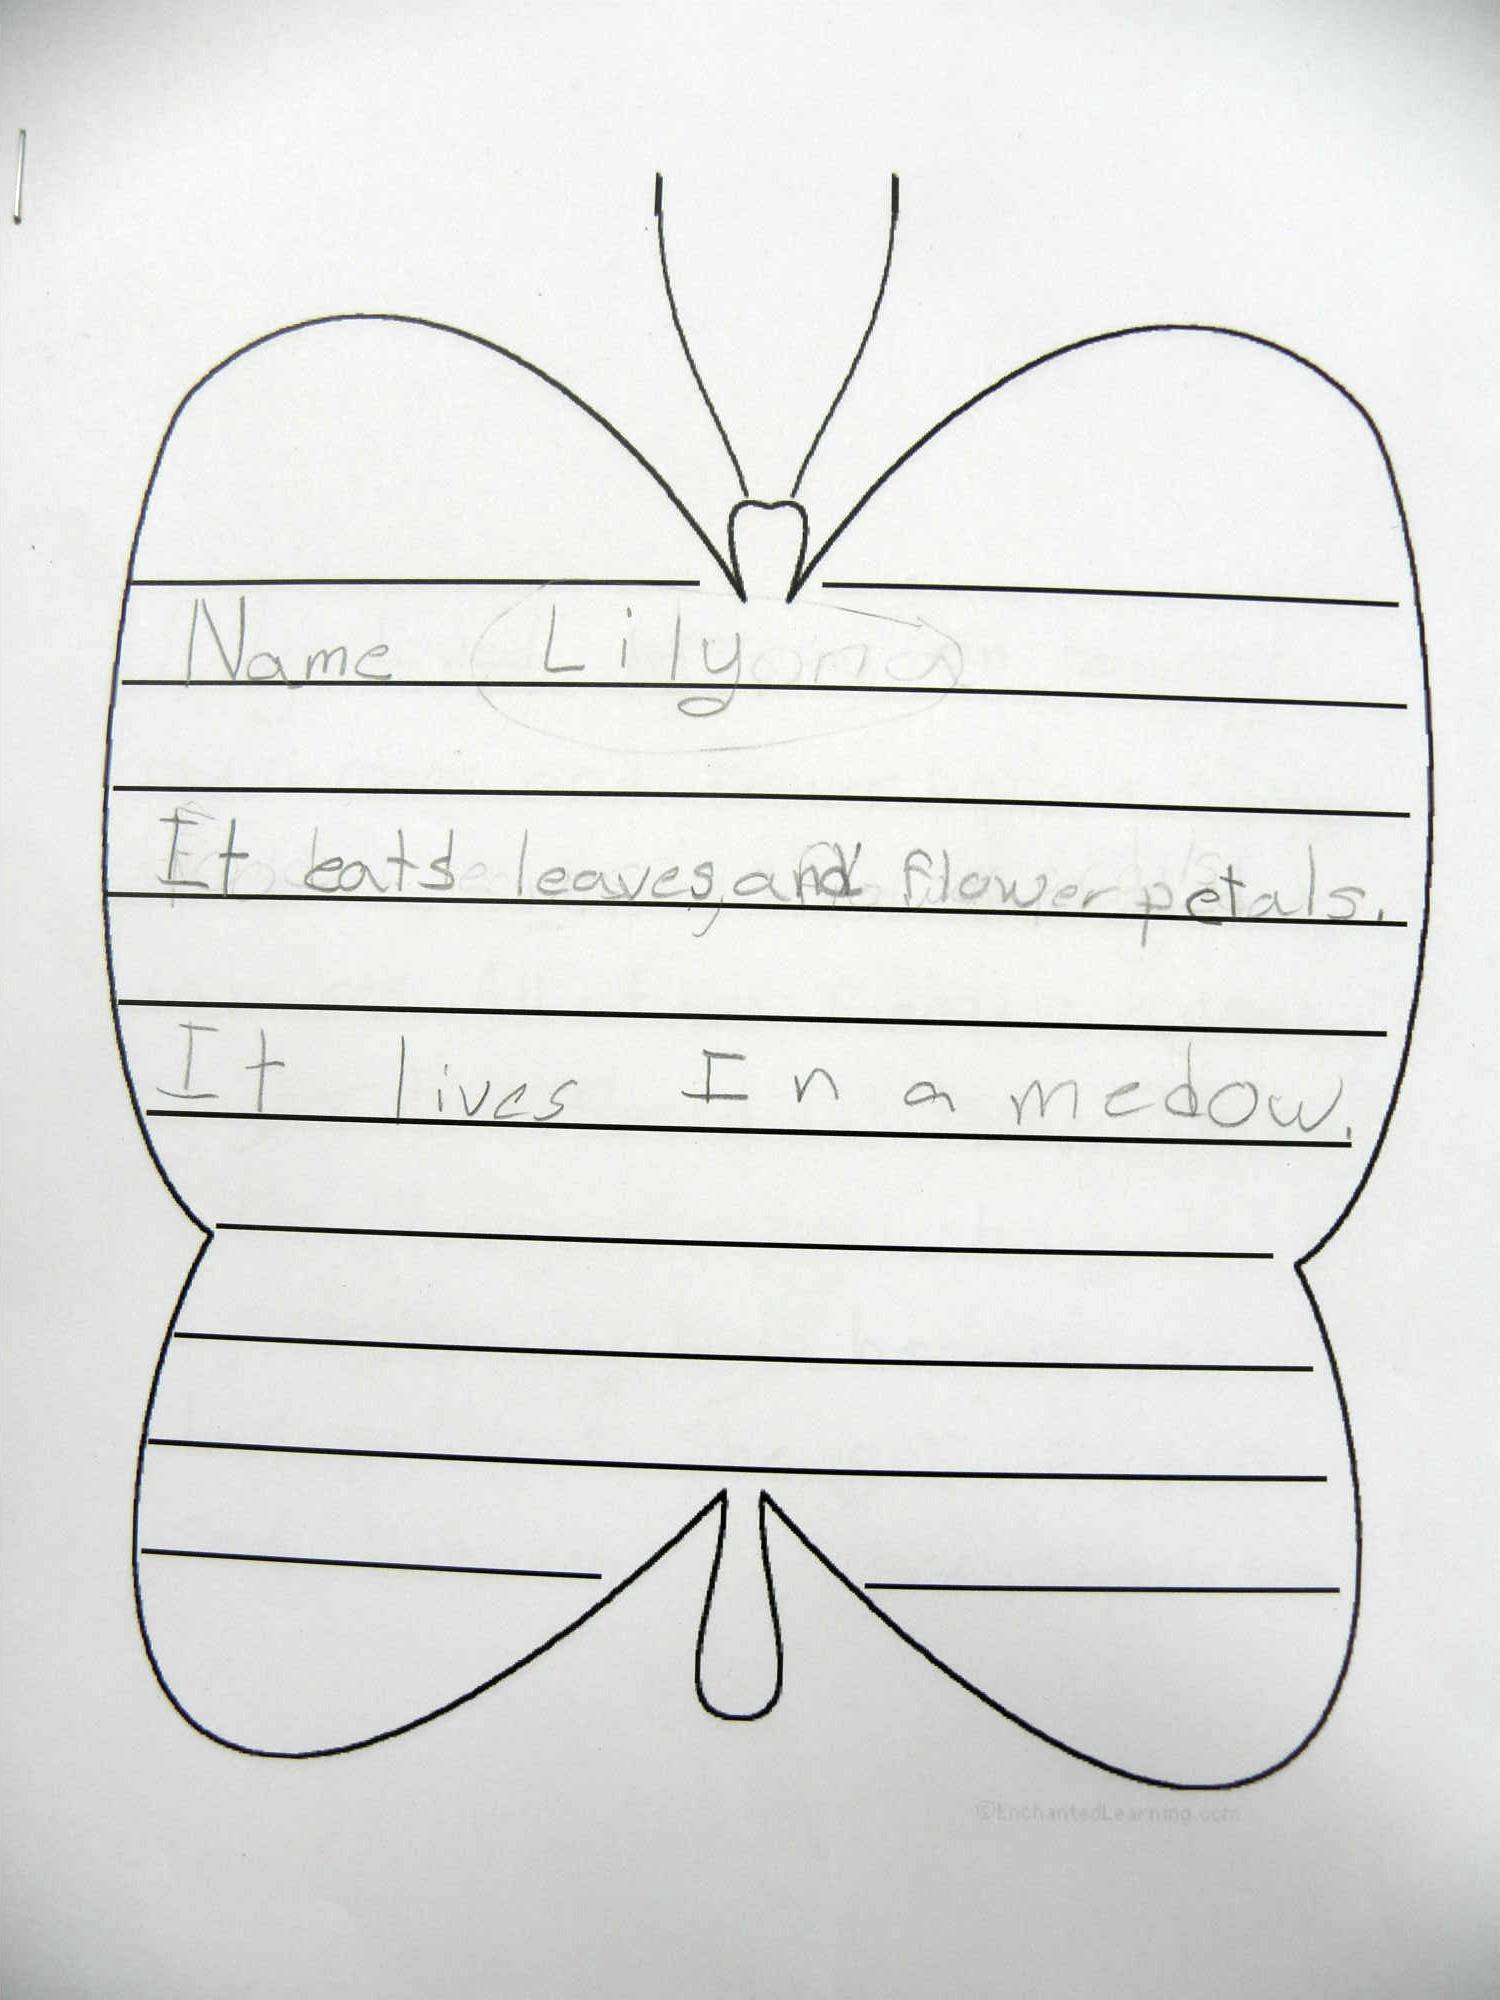 Name Lily
It eats leaves, and flower petals.
It lives In a medow.
©EnchantedLearning.com